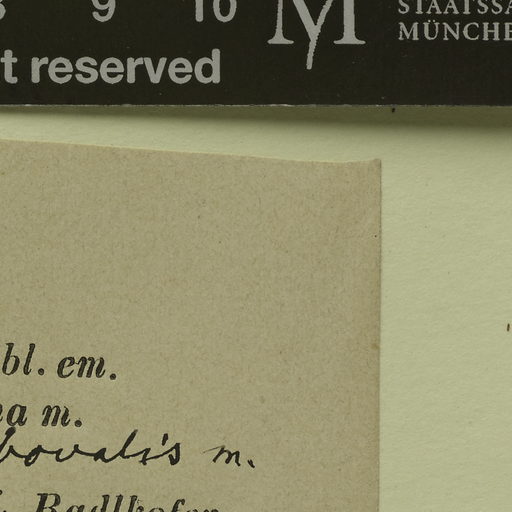 9 10 M STAATSSA
MÜNCHE
t reserved
bl. em.
a m.
bovalis m.
Radlkofer